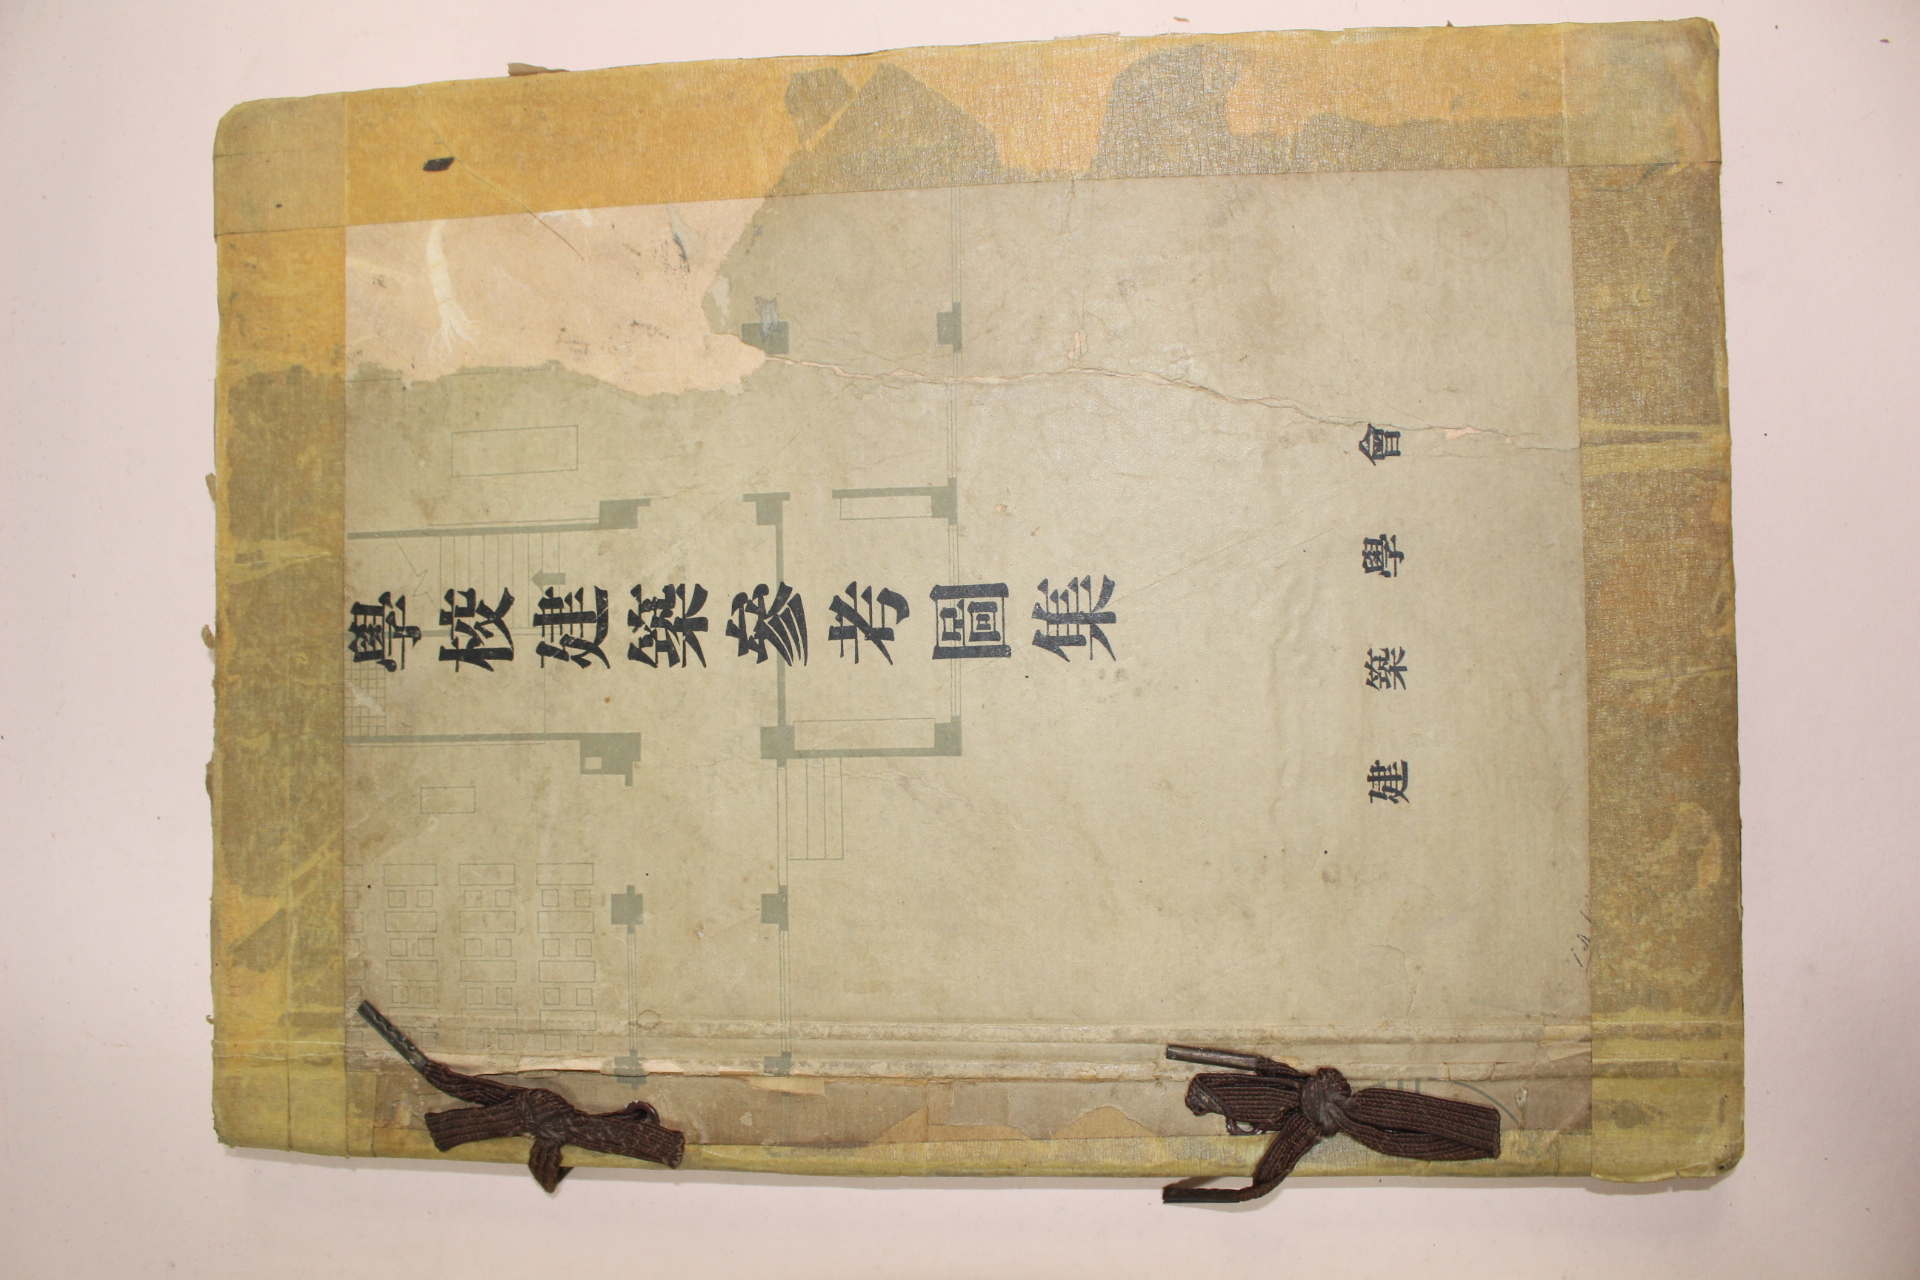 學校建築參考圖集
建築學會